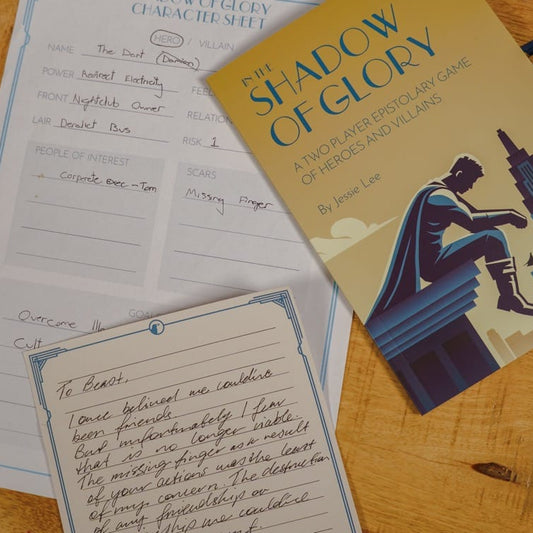 SHADOW OF GLORY
CHARACTER SHEET
HERO / VILLAIN
NAME The Dart (Damien)
POWER Redirect Electricity
FRONT Nightclub Owner
LAIR Derelict Bus
RELATION
RISK 1
PEOPLE OF INTEREST
Corporate Exec - Tom
SCARS
Missing Finger
GOAL
Overcome
Cult
IN THE
SHADOW
OF GLORY
A TWO PLAYER EPISTOLARY GAME
OF HEROES AND VILLAINS
By Jessie Lee
To Beast,
I once believed we could've
been friends.
But unfortunately I fear
that is no longer viable.
The missing finger as a result
of your actions was the least
of my concern. The destruction
of any friendship or
we could've